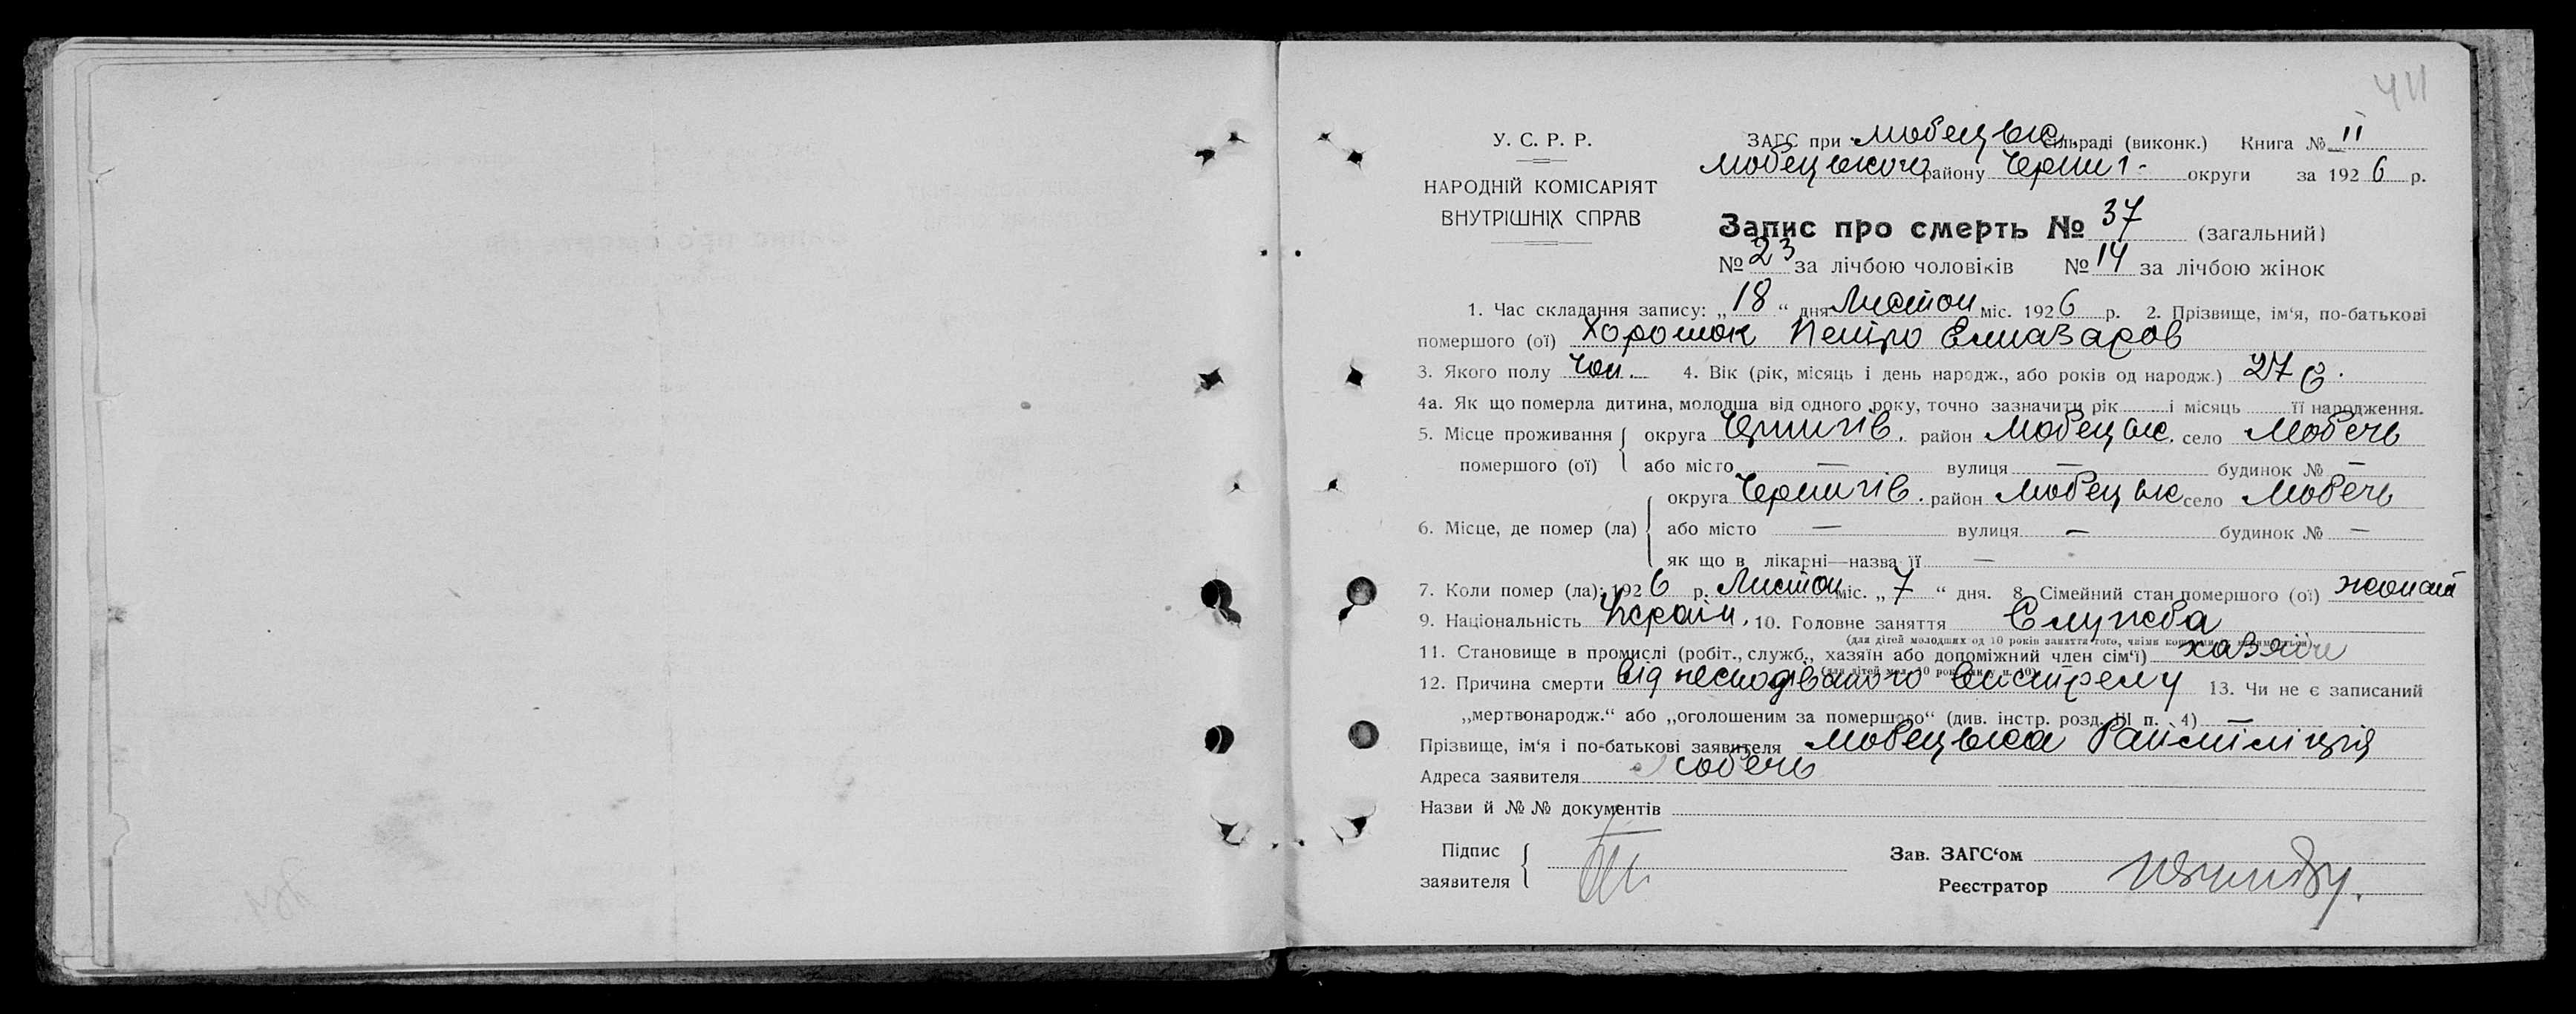 411
У. С. Р. Р.
НАРОДНІЙ КОМІСАРІЯТ
ВНУТРІШНІХ СПРАВ
ЗАГС при Любецьк. сільраді (виконк.) Книга № II
Любецького району Черниг. округи за 1926 р.
Запис про смерть № 37 (загальний)
№ 23 за лічбою чоловіків № 14 за лічбою жінок
1. Час складання запису: „18“ дня Листоп міс. 1926 р. 2. Прізвище, ім‘я, по-батькові
помершого (ої) Хорошок Петро Елиазаров
3. Якого полу Чол. 4. Вік (рік, місяць і день народж., або років од народж.) 27 р.
4а. Як що померла дитина, молодша від одного року, точно зазначити рік і місяць її народження.
5. Місце проживання помершого (ої) округа Чернигів. район Любецьк. село Любечь
або місто — вулиця — будинок № —
6. Місце, де помер (ла) округа Чернигів. район Любецьк село Любечь
або місто — вулиця — будинок № —
як що в лікарні—назва її —
7. Коли помер (ла): 1926 р. Листоп міс. „7“ дня. 8. Сімейний стан помершого (ої) жонат
9. Національність Україн. 10. Головне заняття Служба
(для дітей молодших од 10 років заняття того, чиїми коштами утримується)
11. Становище в промислі (робіт., служб., хазяїн або допоміжний член сім‘ї) хазяін
12. Причина смерти від несподіваного вистрелу 13. Чи не є записаний
„мертвонародж.“ або „оголошеним за помершого“ (див. інстр. розд. III п. 4) —
Прізвище, ім‘я і по-батькові заявителя Любецька Райміліція
Адреса заявителя Любечь
Назви й № № документів
Підпис заявителя
Зав. ЗАГС‘ом
Реєстратор